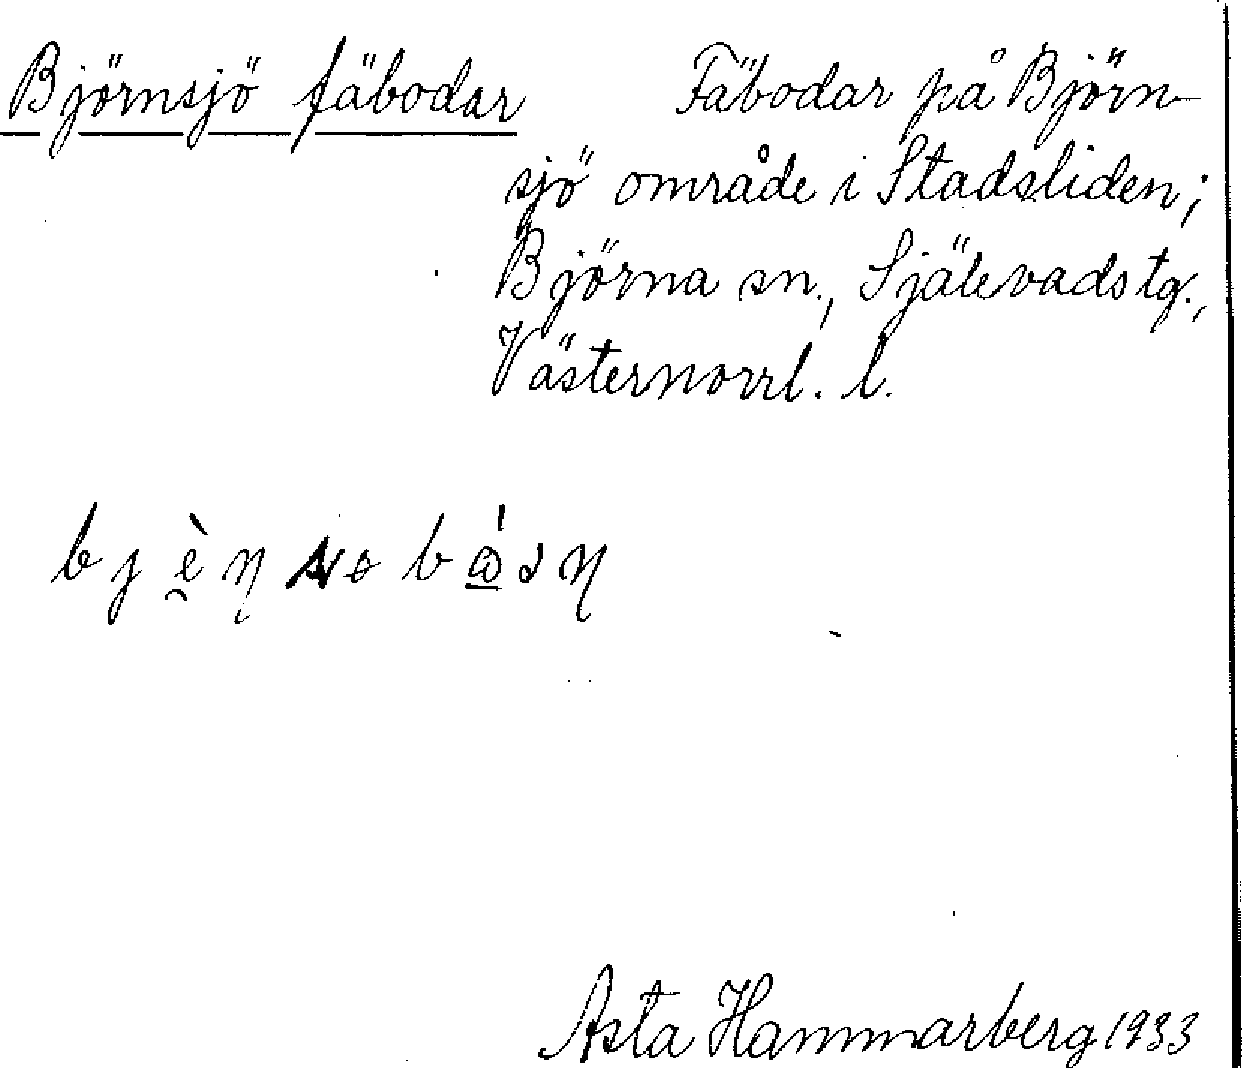 Björnsjö fäbodar Fäbodar på Björn-
sjö område i Stadsliden;
Björna sn., Själevads tg.,
Västernorrl. l.
Asta Hammarberg 1933